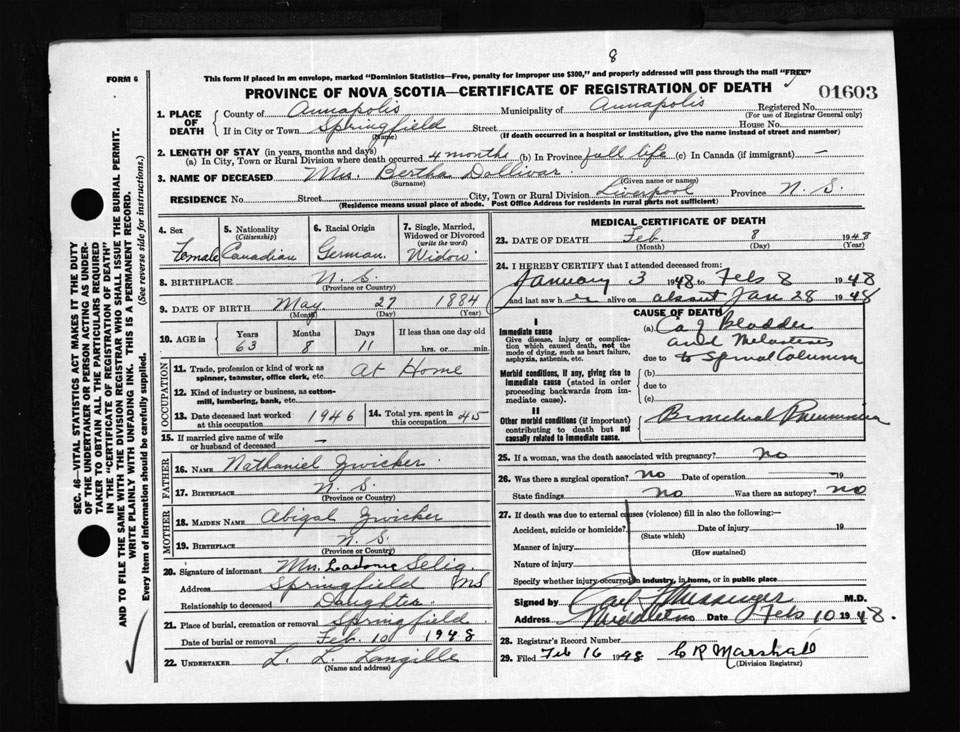 8
FORM 6
This form if placed in an envelope, marked "Dominion Statistics—Free, penalty for improper use $300," and properly addressed will pass through the mail "FREE"
PROVINCE OF NOVA SCOTIA—CERTIFICATE OF REGISTRATION OF DEATH
01603
1. PLACE OF DEATH
County of Annapolis Municipality of Annapolis Registered No.
(For use of Registrar General only)
If in City or Town Springfield Street House No.
(Name) (If death occurred in a hospital or institution, give the name instead of street and number)
2. LENGTH OF STAY (in years, months and days)
(a) In City, Town or Rural Division where death occurred 4 months (b) In Province full life (c) In Canada (if immigrant) —
3. NAME OF DECEASED Mrs. Bertha Dollivar
(Surname) (Given name or names)
RESIDENCE No. Street City, Town or Rural Division Liverpool Province N. S.
(Residence means usual place of abode. Post Office Address for residents in rural parts not sufficient)
4. Sex
Female
5. Nationality
(Citizenship)
Canadian
6. Racial Origin
German
7. Single, Married, Widowed or Divorced
(write the word)
Widow
8. BIRTHPLACE N. S.
(Province or Country)
9. DATE OF BIRTH May 27 1884
(Month) (Day) (Year)
10. AGE in Years Months Days If less than one day
63 8 11 hrs. or min.
OCCUPATION
11. Trade, profession or kind of work as
spinner, teamster, office clerk, etc. At Home
12. Kind of industry or business, as cotton-
mill, lumbering, bank, etc.
13. Date deceased last worked
at this occupation 1946
14. Total yrs. spent in
this occupation 45
15. If married give name of wife
or husband of deceased —
FATHER
16. NAME Nathaniel Zwicker
17. BIRTHPLACE N. S.
(Province or Country)
MOTHER
18. MAIDEN NAME Abigal Zwicker
19. BIRTHPLACE N. S.
(Province or Country)
20. Signature of informant Mrs. Ladonie Selig
Address Springfield NS
Relationship to deceased Daughter
21. Place of burial, cremation or removal Springfield
Date of burial or removal Feb. 10 1948
22. UNDERTAKER L. L. Langille
(Name and address)
MEDICAL CERTIFICATE OF DEATH
23. DATE OF DEATH Feb. 8 1948
(Month) (Day) (Year)
24. I HEREBY CERTIFY that I attended deceased from:
January 3 1948 to Feb 8 1948
and last saw her alive on about Jan 28 1948
CAUSE OF DEATH
I
Immediate cause
Give disease, injury or complica-
tion which caused death, not the
mode of dying, such as heart failure,
asphyxia, asthenia, etc.
(a) Ca of Bladder
and Metastases
due to to Spinal Column
Morbid conditions, if any, giving rise to
immediate cause (stated in order
proceeding backwards from im-
mediate cause).
(b)
due to
(c)
II
Other morbid conditions (if important)
contributing to death but not
causally related to immediate cause.
Bronchial Pneumonia
25. If a woman, was the death associated with pregnancy? no
26. Was there a surgical operation? no Date of operation 19
State findings no Was there an autopsy? no
27. If death was due to external causes (violence) fill in also the following:—
Accident, suicide or homicide? Date of injury 19
(State which)
Manner of injury
(How sustained)
Nature of injury
Specify whether injury occurred in industry, in home, or in public place
Signed by Messinger M.D.
Address Middleton Date Feb 10 1948.
28. Registrar's Record Number
29. Filed Feb 16 1948 C R Marshall
(Division Registrar)
SEC. 46—VITAL STATISTICS ACT MAKES IT THE DUTY
OF THE UNDERTAKER OR PERSON ACTING AS UNDER-
TAKER TO OBTAIN ALL THE PARTICULARS REQUIRED
IN THE "CERTIFICATE OF REGISTRATION OF DEATH"
AND TO FILE THE SAME WITH THE DIVISION REGISTRAR WHO SHALL ISSUE THE BURIAL PERMIT.
WRITE PLAINLY WITH UNFADING INK. THIS IS A PERMANENT RECORD.
Every item of information should be carefully supplied. (See reverse side for instructions.)